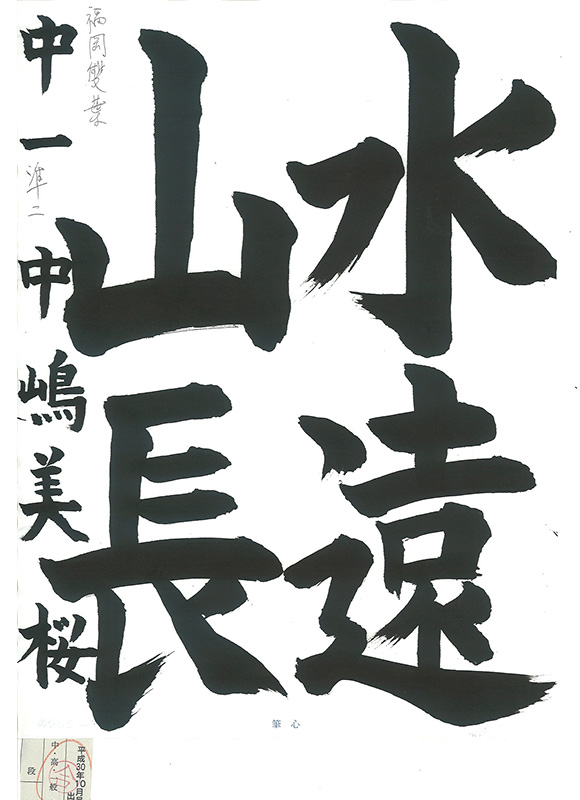 水遠
山長
福岡雙葉
中一 準二 中嶋美桜
心筆
平成30年10月
出
中・高・一般
段